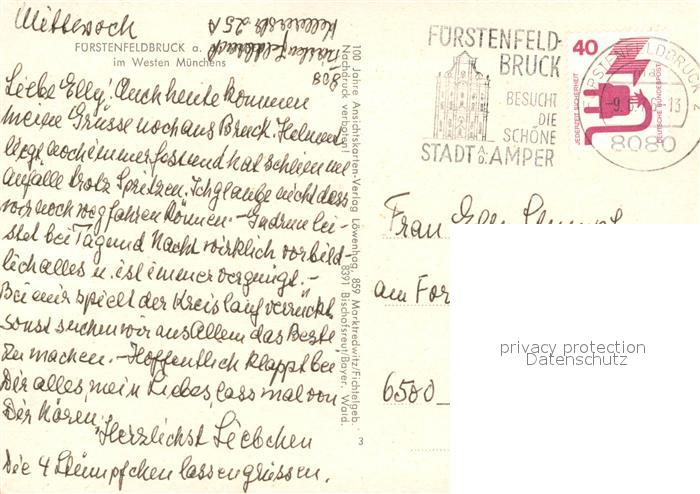 Mittwoch
FÜRSTENFELDBRUCK a.
im Westen Münchens
808
Fürstenfeldbruck
25A
Liebe Elly! Auch heute kommen
meine Grüsse noch aus Bruck. Helmut
liegt noch immer fest und hat schlimme
Anfälle trotz Spritzen. Ich glaube nicht dass
wir noch wegfahren können. - Gudrun lei-
stet bei Tag und Nacht wirklich vorbild-
lich alles u. ist immer vergnügt. -
Bei mir spielt der Kreislauf verrückt.
Sonst suchen wir aus Allem das Beste
zu machen. - Hoffentlich klappt bei
Dir alles, mein Liebes, lass mal von
Dir hören,
Herzlichst Liebchen
Die 4 Stümpfchen lassen grüssen.
100 Jahre Ansichtskarten-Verlag Löwenhag, 859 Marktredwitz/Fichtelgeb.
Nachdruck verboten! 8391 Bischofsreut/Bayer. Wald.
3
FÜRSTENFELD-
BRUCK
BESUCHT
DIE
SCHÖNE
STADT A. D. AMPER
40
JEDERZEIT SICHERHEIT
DEUTSCHE BUNDESPOST
FÜRSTENFELDBRUCK
8080
Frau Elly
am For
6500
privacy protection
Datenschutz